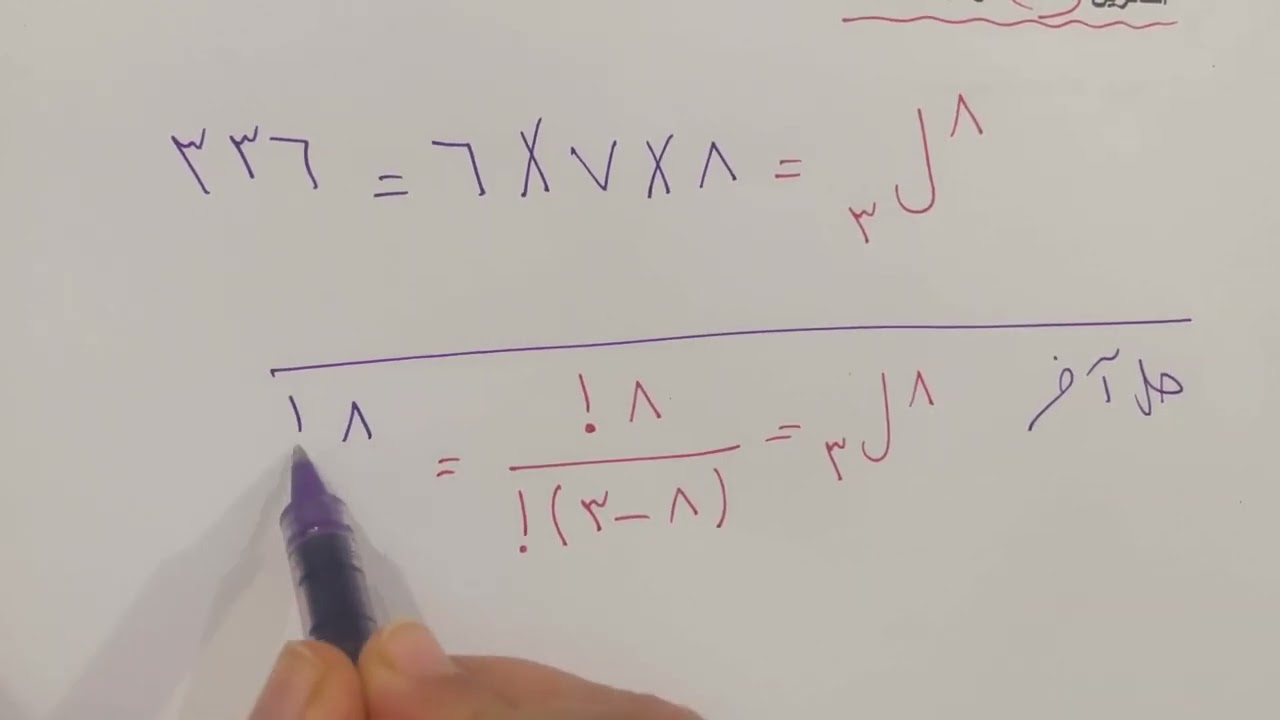 ٨ل٣ = ٨ × ٧ × ٦ = ٣٣٦
حل آخر
٨ل٣ = ٨! / (٨ – ٣)! = ٨ !